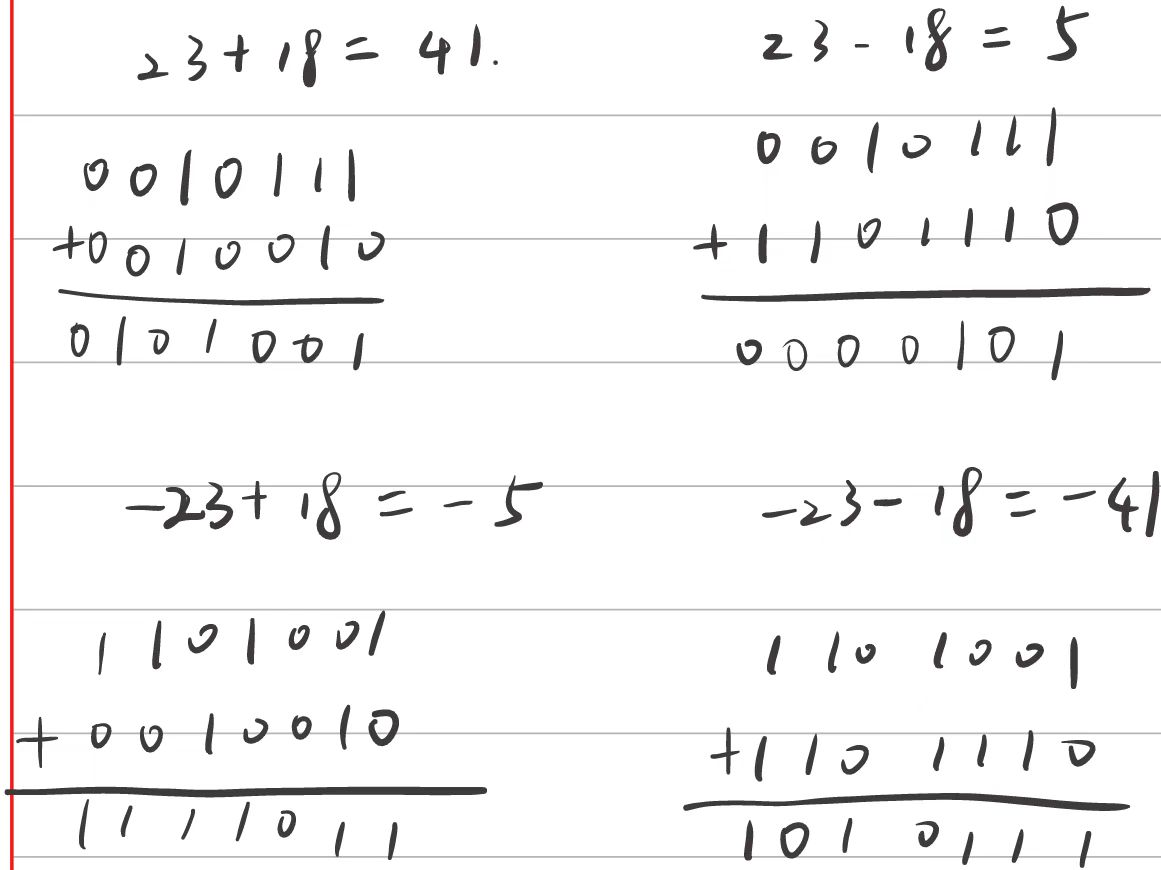 23+18=41.
0010111
+0010010
0101001
23-18=5
0010111
+1101110
0000101
-23+18=-5
1101001
+0010010
1111011
-23-18=-41
1101001
+1101110
1010111